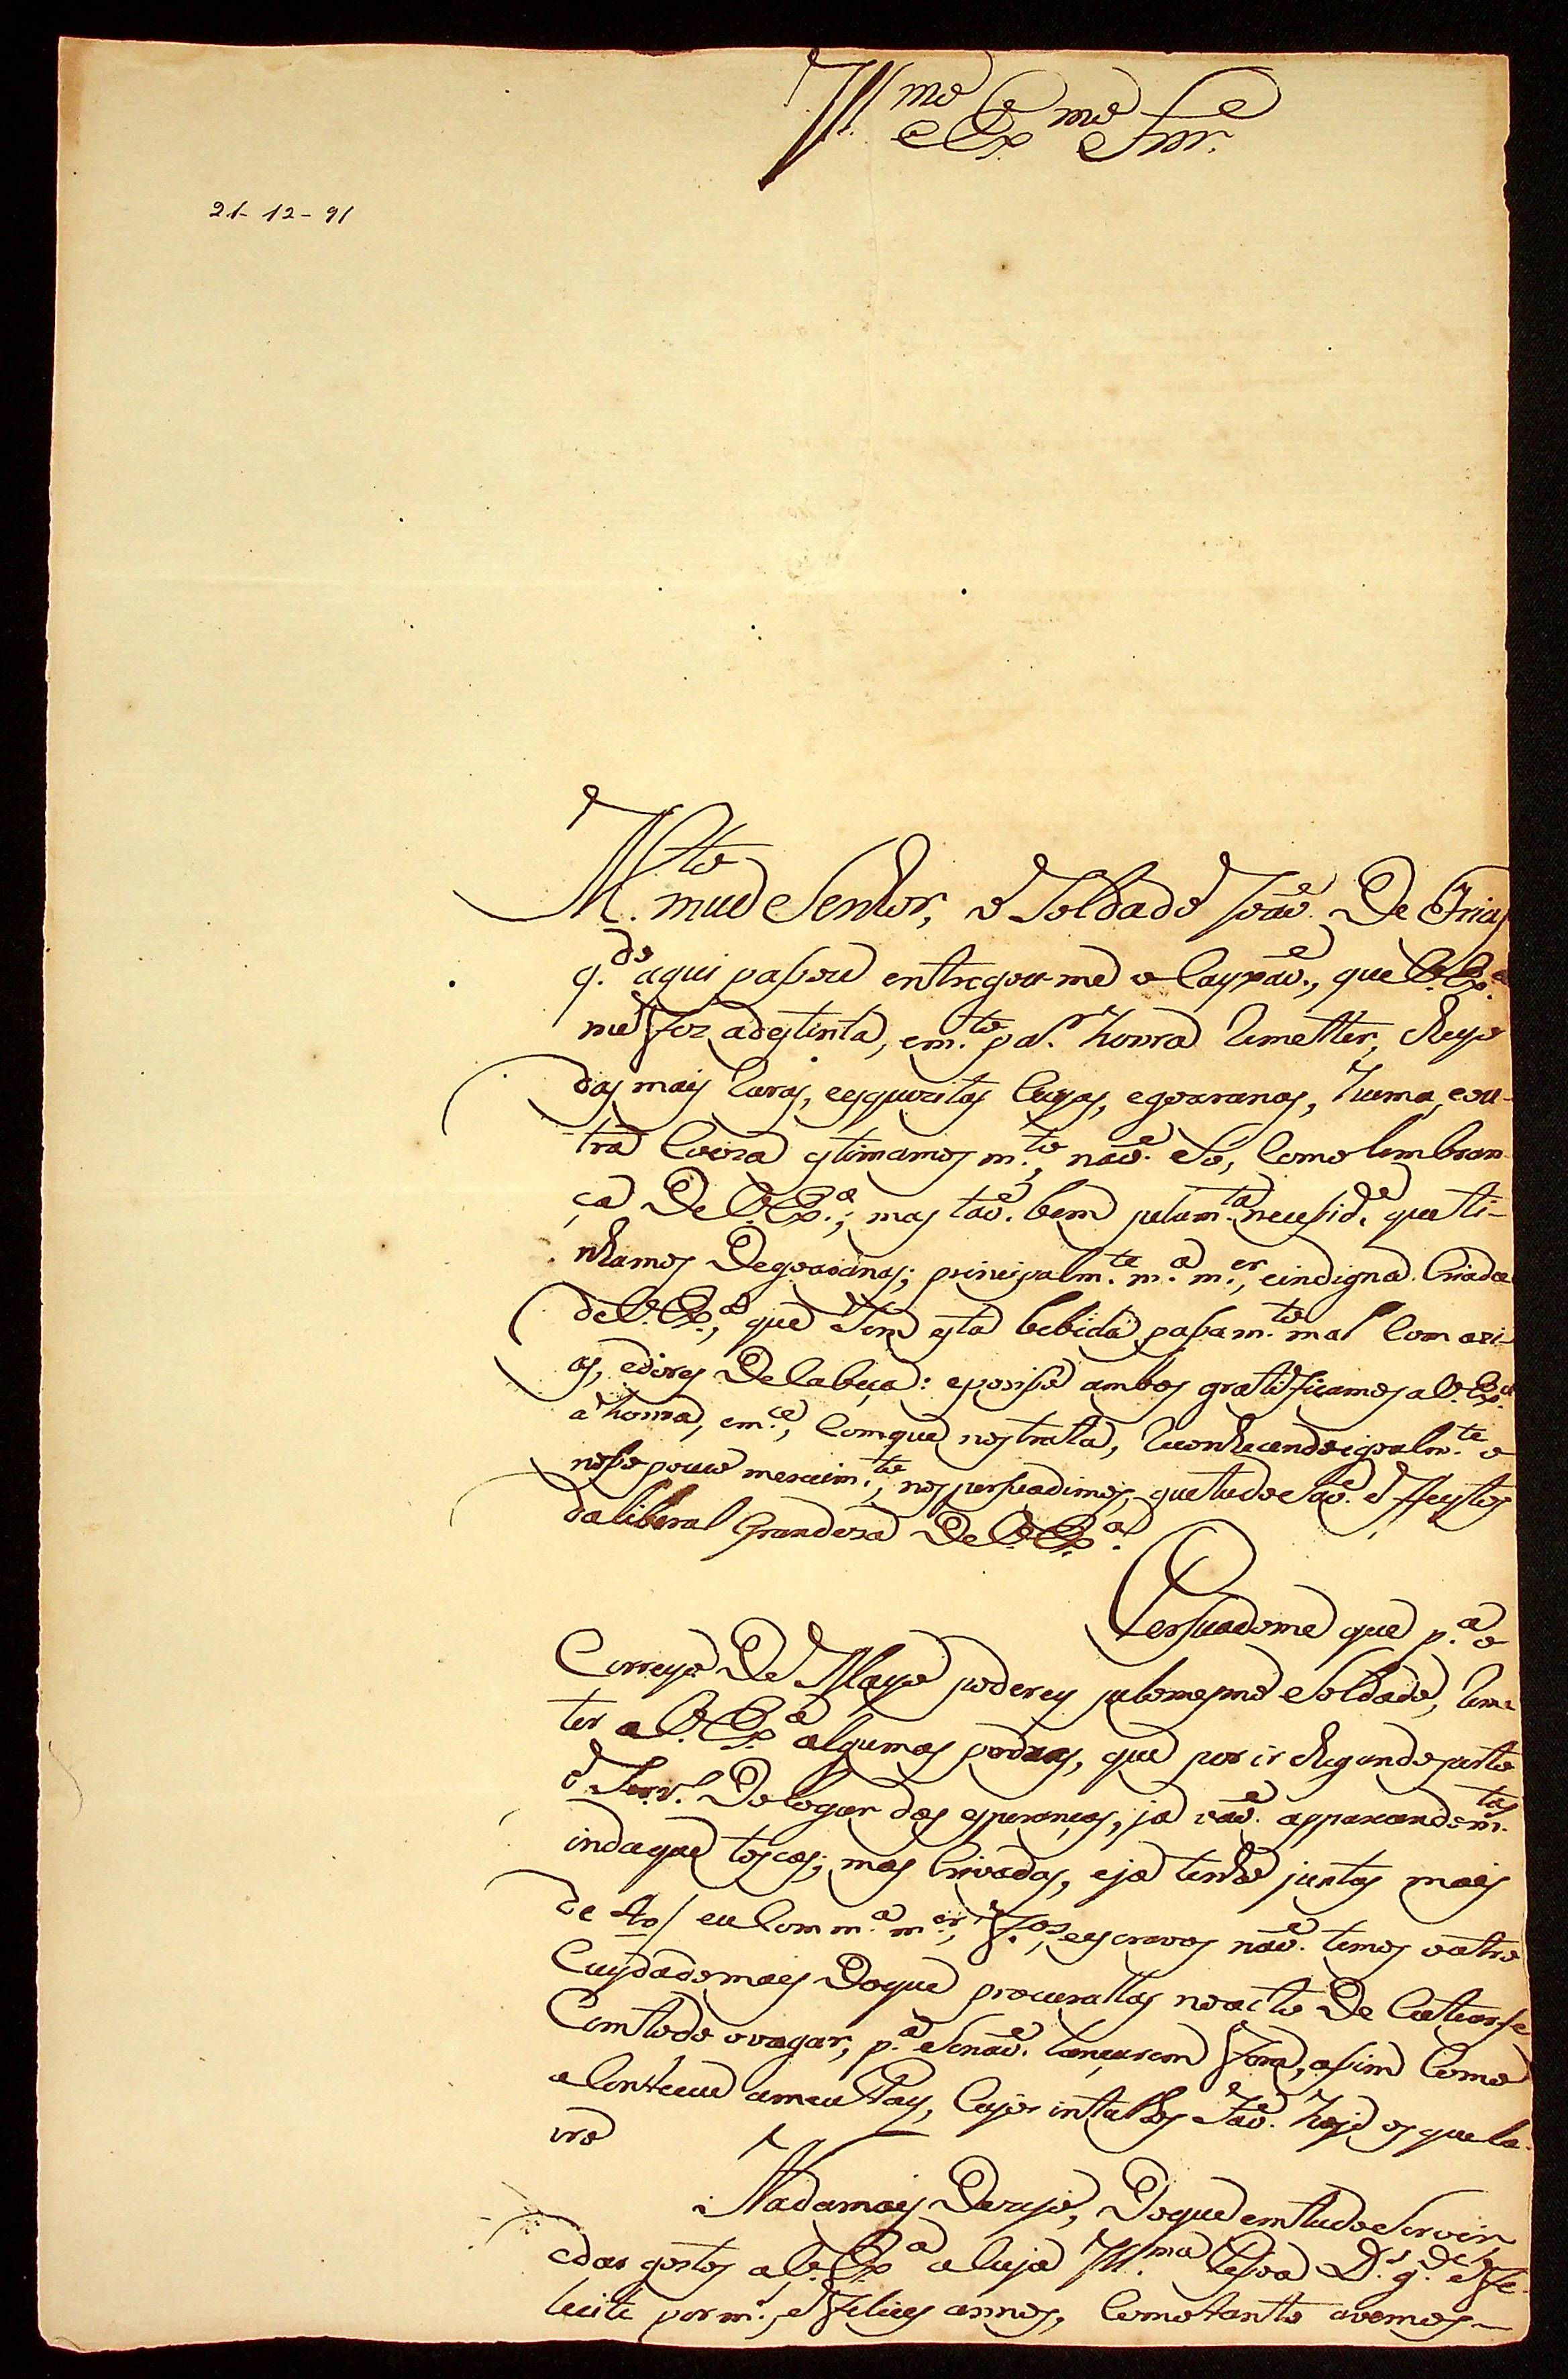 Ill.mo e Ex.mo Snr.
21-12-91
M.to meu Senhor, o Soldado João De Frias
q.do aqui passou entregou-me o Cayxão, que V. Ex.a
me fez a destinta, e m.to p.a honra Remetter, cheyo
das mais raras, e esquezitas Cuyas, e goaranas, huma, e ou-
tra Coiza estimamos m.to, não Só, Como lembran-
ça De V. Ex.a; mas tão bem pelam.ta necessid.e que ti-
nhamos De goaranas; principalm.te m.a m.er, e indigna Criada
de V. Ex.a, que Sem esta bebida passa m.to mal Com azi-
as, e dores De Cabeça: e por isso ambos gratificamos a V. Ex.a
a honra, e m.ce, Com que nos trata, Reconhecendo igoalm.te o
nosso pouco merecim.to, nos persuadimos, que tudo São effeytos
da liberal Grandeza De V. Ex.a
Persuadome que p.a o
Correyo De Mayo poderey pelo mesmo Soldado, Reme
ter a V. Ex.a algumas pedras, que por ir chegando perto
o Serv.o Do logar das esperanças, ja vão apparecendo m.tas
inda que toscas; mas Crivadas, e ja tenho juntas mais
de 40/ eu Com m.a m.er, F.os, e escravos não temos outro
Cuydado mais Do que procurallas no acto De Cateorse
Com todo o vagar, p.a Se não lançarem fora, assim Como
aConteceu a meu Pay, Cujos intalhos São hoje os que la-
vro
Nada mais Dezejo, Do que em tudo Servir,
e dar gostos a V. Ex.a a Cuja Ill.ma Pessoa D.s g.de e Fe-
licite por m.s, e felices annos, Como tanto avemos